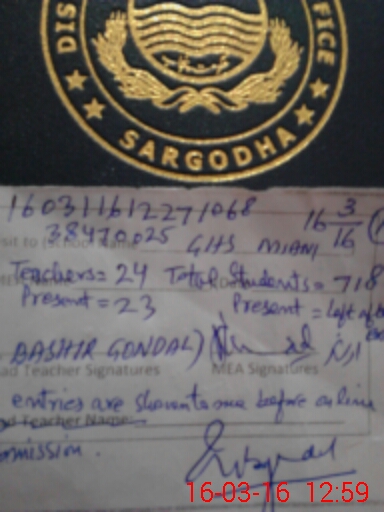 DIS FFICE
SARGODHA
160311612271068 16 3/16
38470025 GHS MIANI
Teachers = 24 Total Students = 718
Present = 23 Present = Left
BASHIR GONDAL)
ad Teacher Signatures MEA Signatures
entries are before
ad Teacher Name
mission.
16-03-16 12:59